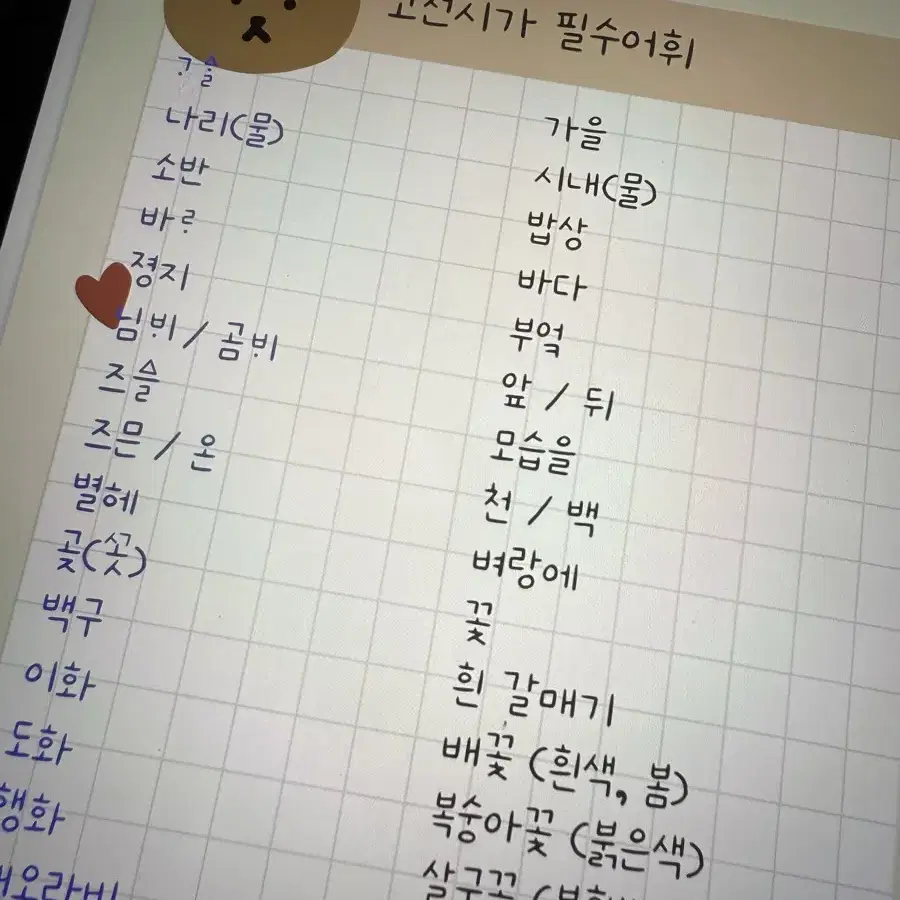 고전시가 필수어휘
ᄀᆞᅀᆞᆯ 가을
나리(물) 시내(물)
소반 밥상
바ᄅᆞ 바다
졍지 부엌
님ᄇᆡ / 곰ᄇᆡ 앞 / 뒤
즈ᅀᅳᆯ 모습을
즈믄 / 온 천 / 백
별헤 벼랑에
곶 꽃
백구 흰 갈매기
이화 배꽃 (흰색, 봄)
도화 복숭아꽃 (붉은색)
행화 살구꽃